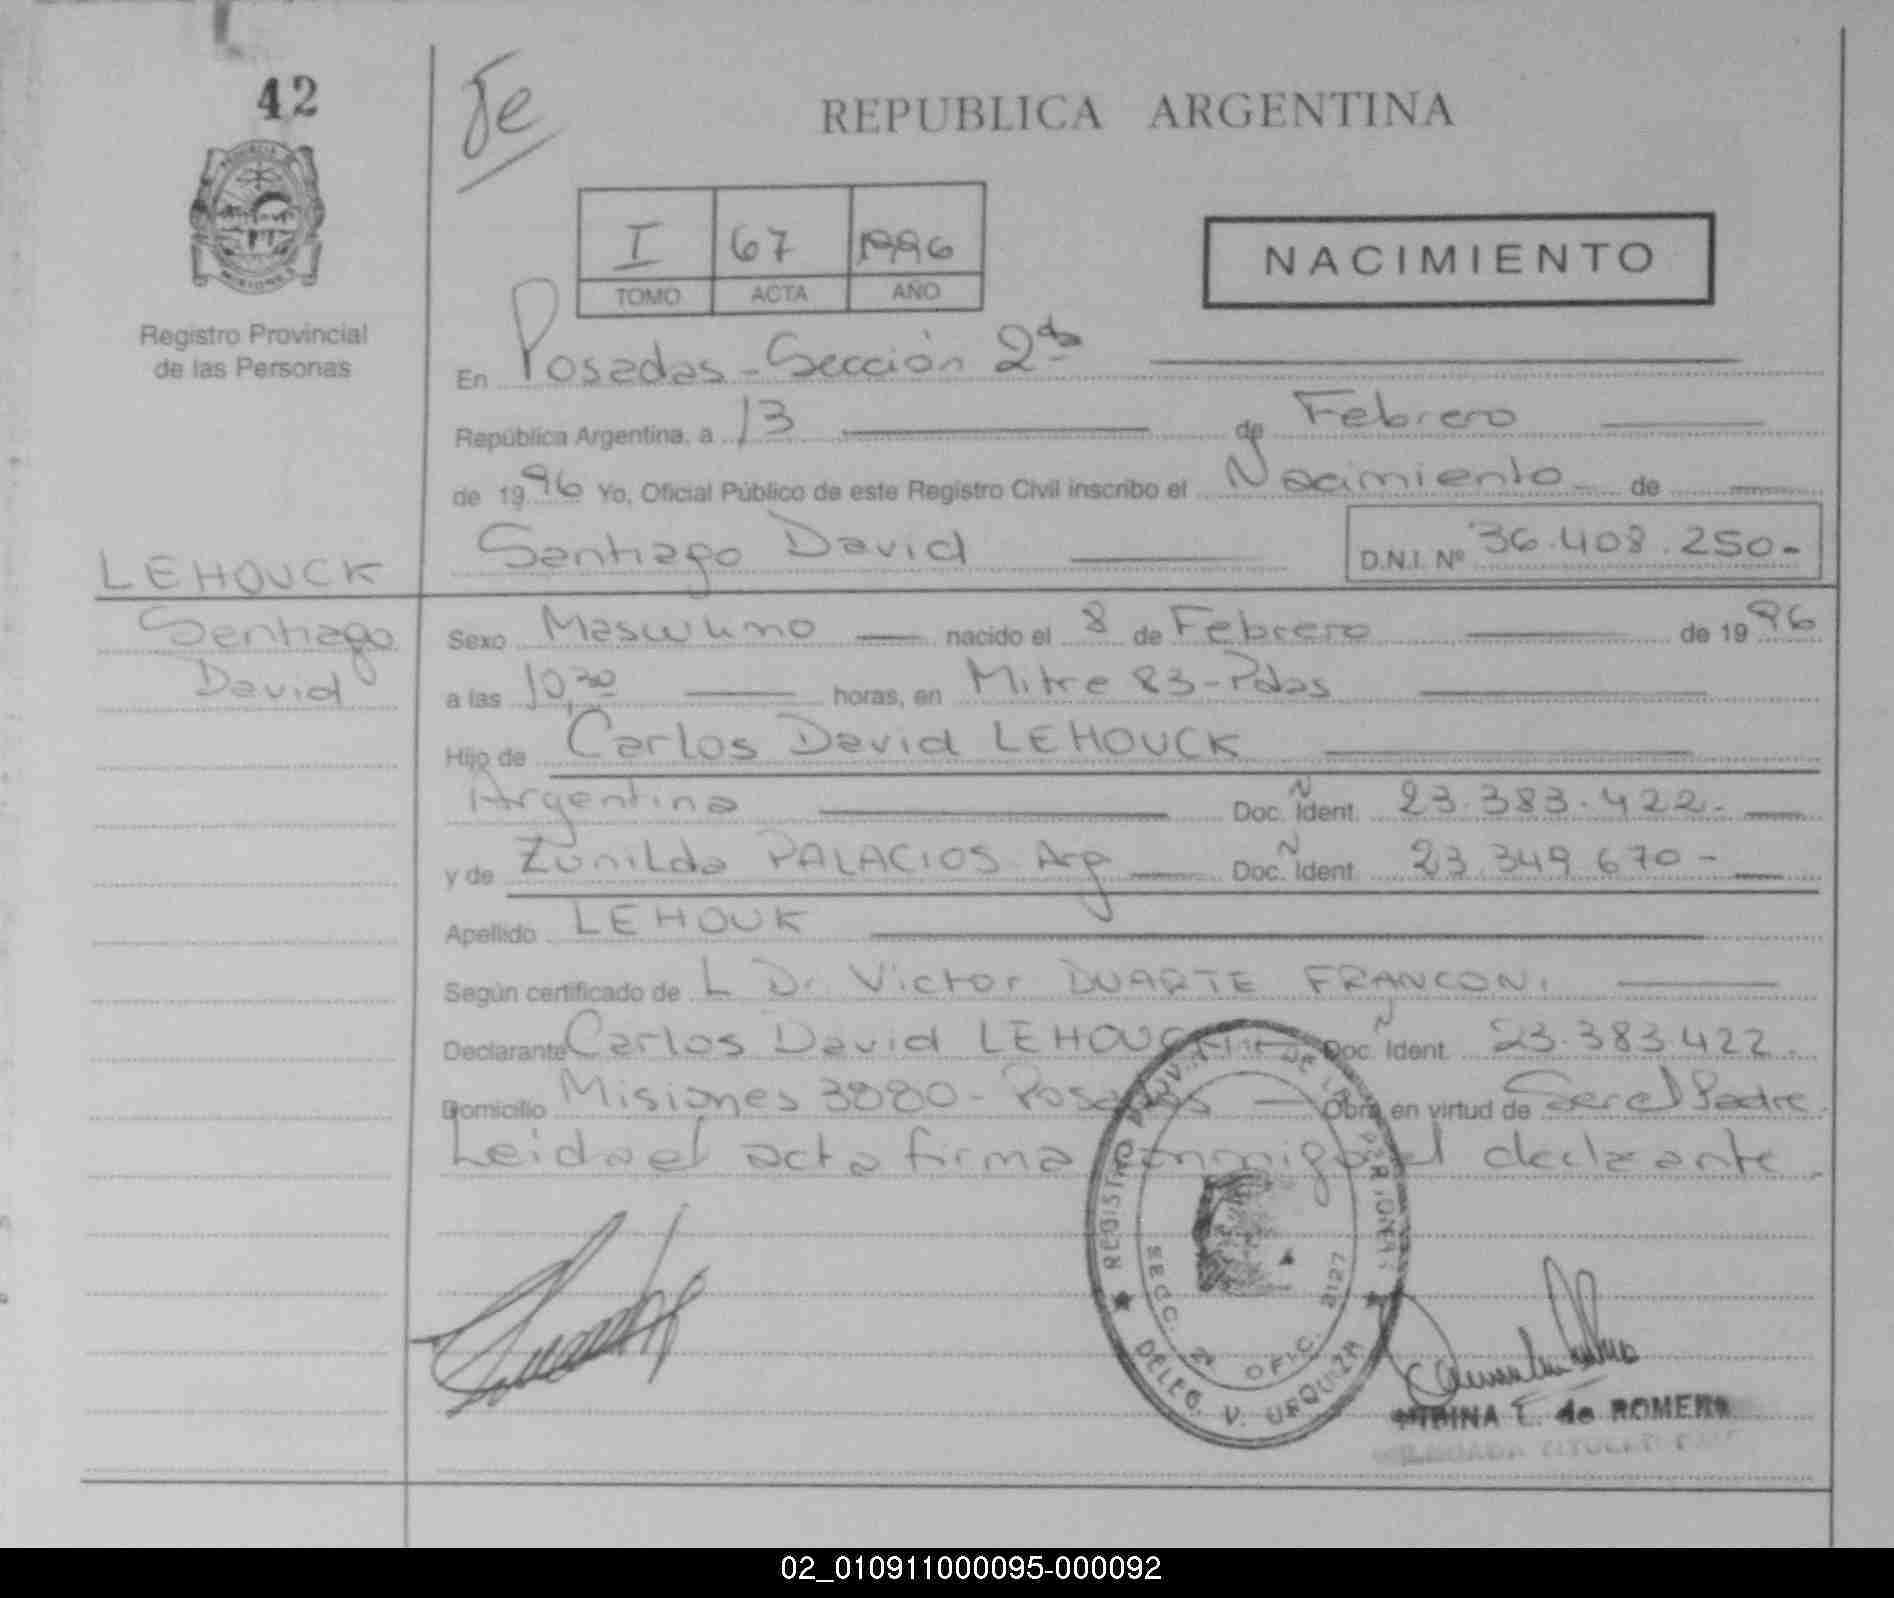 42
Je
REPUBLICA ARGENTINA
I 67 1996
TOMO ACTA AÑO
NACIMIENTO
Registro Provincial
de las Personas
En Posadas - Sección 2da
República Argentina, a 13 de Febrero
de 1996 Yo, Oficial Público de este Registro Civil inscribo el Nacimiento de
Santiago David D.N.I. Nº 36.408.250-
LEHOUCK
Santiago
David
Sexo Masculino nacido el 8 de Febrero de 1996
a las 10,30 horas, en Mitre 83-Pdas
Hijo de Carlos David LEHOUCK
Argentina Doc. Ident. 23.383.422.-
y de Zunilda PALACIOS Arg Doc. Ident. 23.349.670-
Apellido LEHOUK
Según certificado de L Dr Victor DUARTE FRANCONI
Declarante Carlos David LEHOUCK Doc. Ident. 23.383.422.
Domicilio Misiones 3880- Posadas Obra en virtud de Ser el Padre.
Leida el acta firma conmigo el declarante.
REGISTRO PROV. DE LAS PERSONAS
SECC. 2ª OFIC. 2127
DELEG. V. URQUIZA
E. de ROMERO
02_010911000095-000092